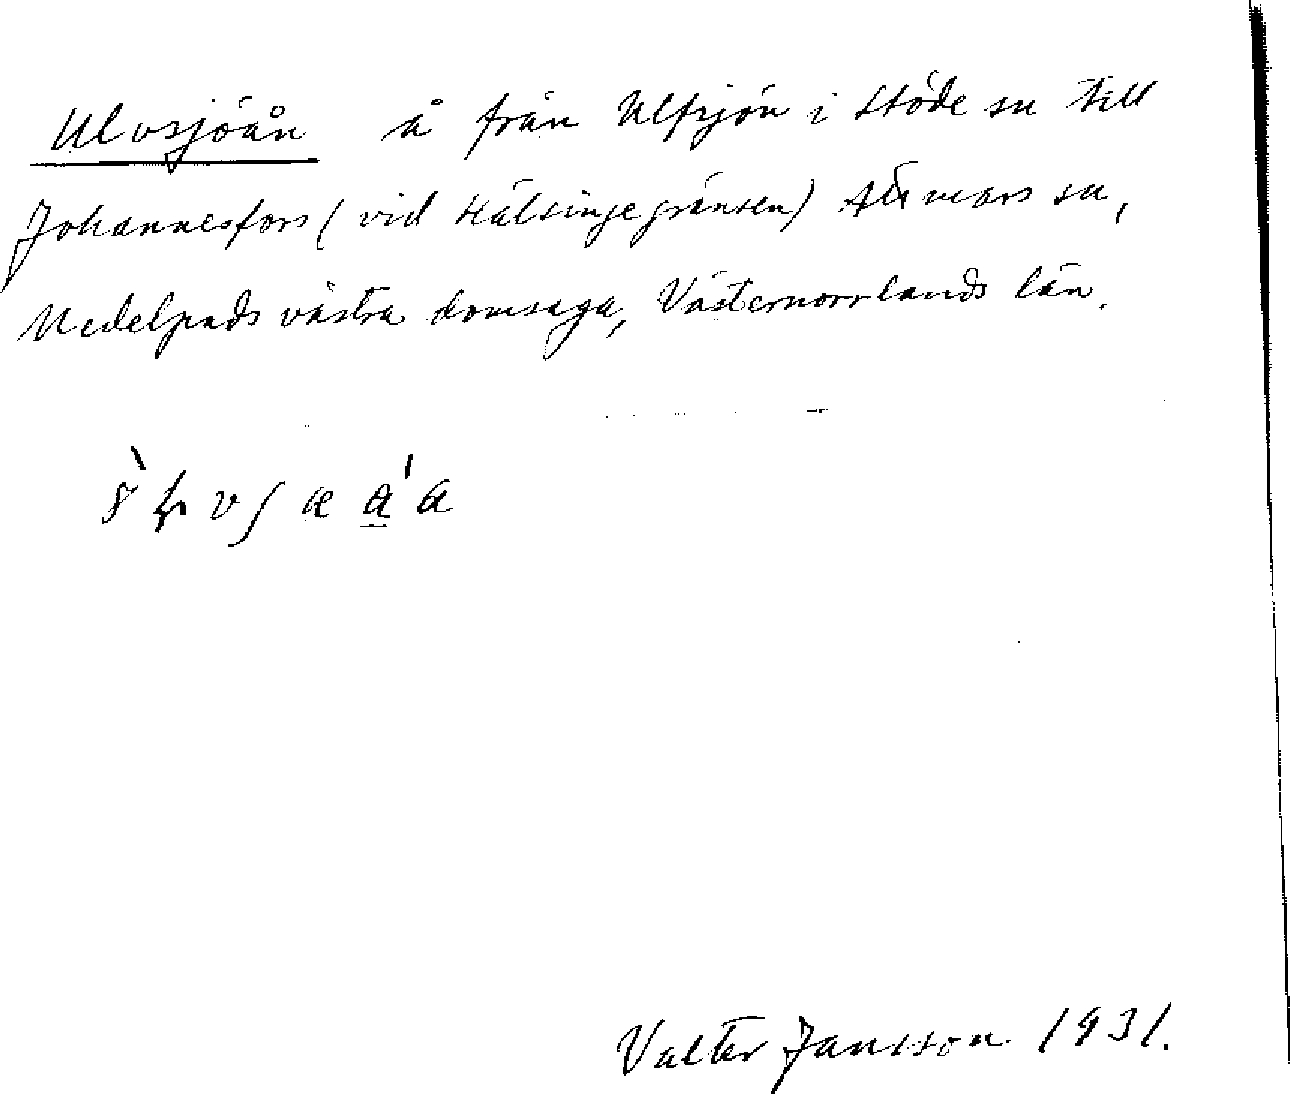 Ulvsjöån å från Ulfsjön i Stöde sn till
Johannesfors (vid Hälsingegränsen) Attmars sn,
Medelpads västra domsaga, Västernorrlands län.
Valter Jansson 1931.